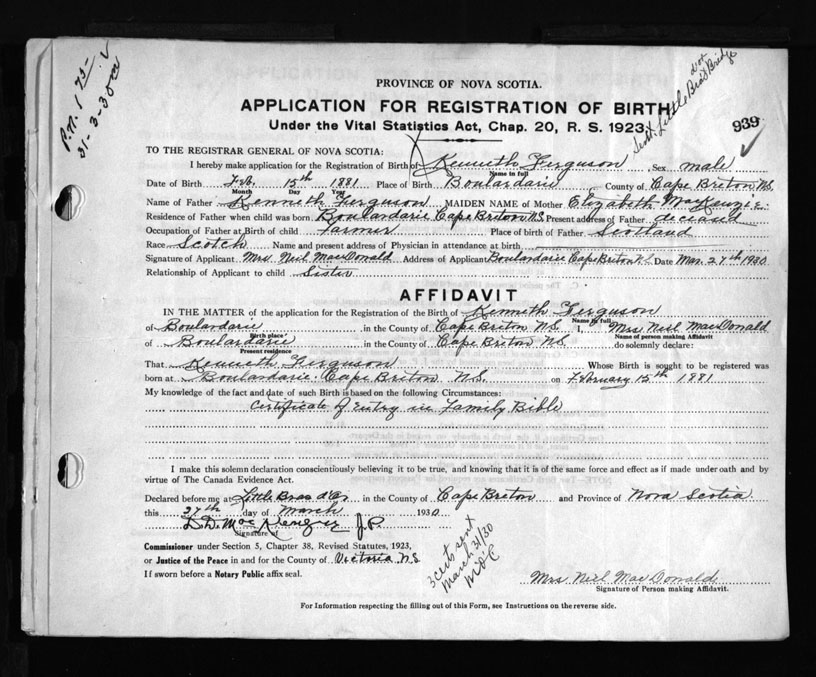 P.N. 1 75-
31-3-30
PROVINCE OF NOVA SCOTIA.
APPLICATION FOR REGISTRATION OF BIRTH
Under the Vital Statistics Act, Chap. 20, R. S. 1923.
not
Little Bras Bridge
939
TO THE REGISTRAR GENERAL OF NOVA SCOTIA:
I hereby make application for the Registration of Birth of Kenneth Ferguson, Sex male
Name in full
Date of Birth Feb. 15th 1881 Place of Birth Boulardarie County of Cape Breton N.S.
Month Day Year
Name of Father Kenneth Ferguson MAIDEN NAME of Mother Elizabeth MacKenzie
Residence of Father when child was born Boulardarie Cape Breton N.S. Present address of Father deceasd
Occupation of Father at Birth of child Farmer Place of birth of Father Scotland
Race Scotch Name and present address of Physician in attendance at birth
Signature of Applicant Mrs. Neil MacDonald Address of Applicant Boulardarie Cape Breton N.S. Date Mar. 27th 1930
Relationship of Applicant to child Sister
AFFIDAVIT
IN THE MATTER of the application for the Registration of the Birth of Kenneth Ferguson
Name in full
of Boulardarie in the County of Cape Breton N.S. I, Mrs Neil MacDonald
Birth place Name of person making Affidavit
of Boulardarie in the County of Cape Breton N.S. do solemnly declare:
Present residence
That Kenneth Ferguson Whose Birth is sought to be registered was
born at Boulardarie Cape Breton N.S. on February 15th 1881
My knowledge of the fact and date of such Birth is based on the following Circumstances:
Certificate of Entry in Family Bible
I make this solemn declaration conscientiously believing it to be true, and knowing that it is of the same force and effect as if made under oath and by
virtue of The Canada Evidence Act.
Declared before me at Little Bras d'Or in the County of Cape Breton and Province of Nova Scotia
this 27th day of March 1930
D. D. Mac J.P.
Signature of
Commissioner under Section 5, Chapter 38, Revised Statutes, 1923,
or Justice of the Peace in and for the County of Victoria N.S.
If sworn before a Notary Public affix seal.
3 certs sent
March 31/30
Mrs Neil MacDonald
Signature of Person making Affidavit.
For Information respecting the filling out of this Form, see Instructions on the reverse side.